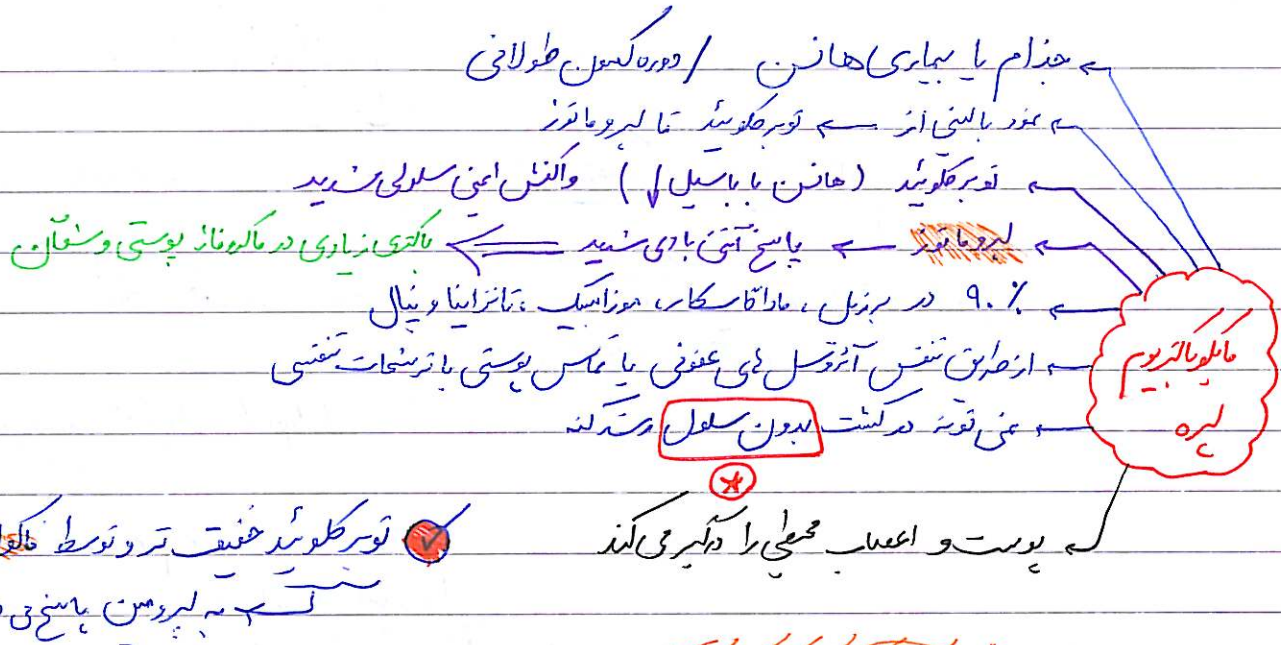 جذام یا بیماری هانسن / دوره کمون طولانی
نمود بالینی از ← توبرکلوئید تا لپروماتوز
توبرکلوئید (هانسن با باسیل ↓) واکنش ایمنی سلولی شدید
لپروماتوز ← پاسخ آنتی بادی شدید ⇐ باکتری زیادی در ماکروفاژ پوستی و شوآن
۹۰٪ در برزیل، ماداگاسکار، موزامبیک، تانزانیا و نپال
مایکوباکتریوم
لپره
از طریق تنفس آئروسل های عفونی یا تماس پوستی با ترشحات تنفسی
نمی تونه در کشت بدون سلول رشد کنه
پوست و اعصاب محیطی را درگیر می کند
توبرکلوئید خفیف تر و توسط
به لپرومین پاسخ می